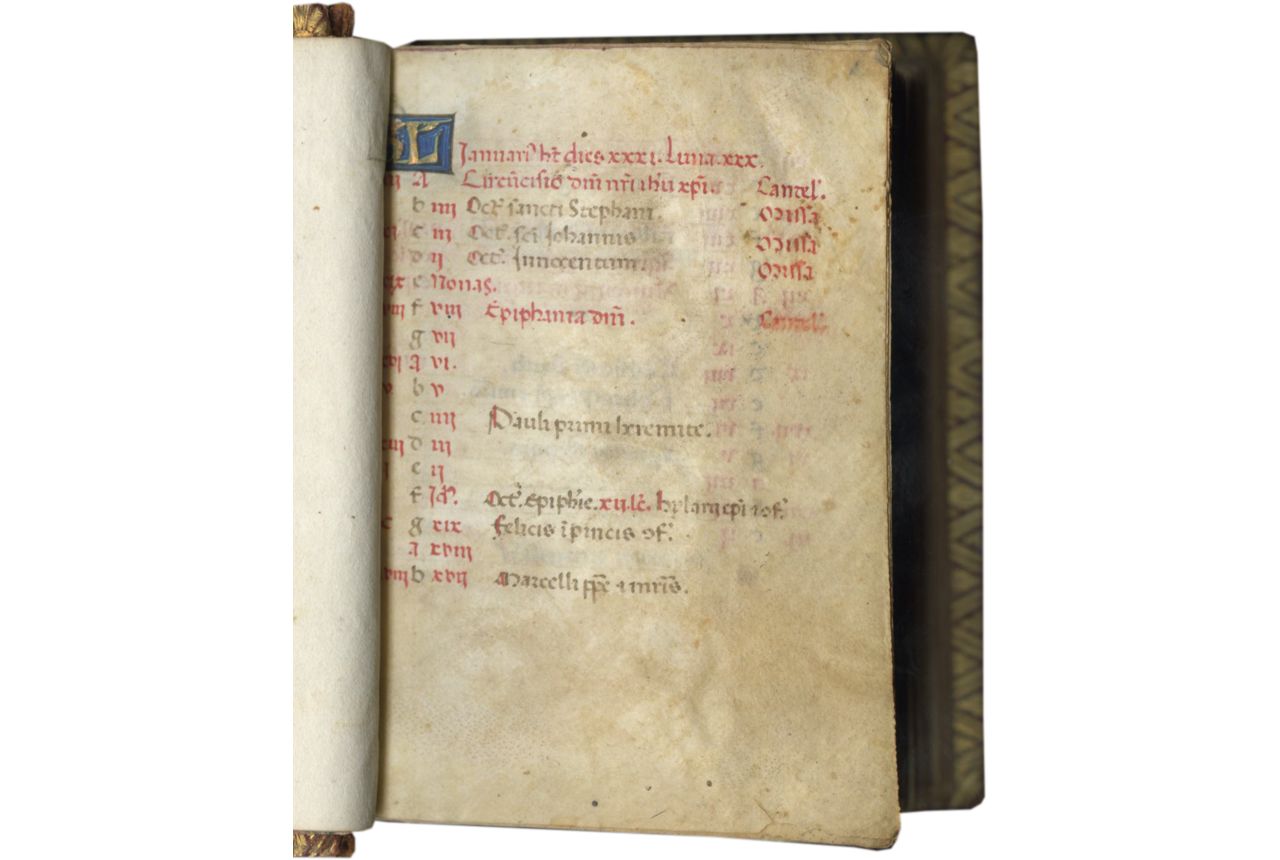 KL Januariꝰ hꝫ dies xxxi. Luna. xxx.
iii A Circūcisio dn̄i nr̄i ihū xp̄i. Cancel'.
b iiii Oct' sancti Stephani. Missa
xi c iii Oct'. sc̄i Johannis Missa
d ii Oct' Innocentum. Missa
xix e Nonas.
viii f viii Epiphania dn̄i. Cancel'.
g vii
xvi A vi.
v b v
c iiii Pauli primi heremite.
xiii d iii
e ii
f Id'. Oct'. epiphīe. xii.lc̄. hylarij ep̄i ⁊ ꝯf'.
g xix Felicis ī pincis ꝯf'.
A xviii
b xvii Marcelli pp̄e ⁊ mr̄is.